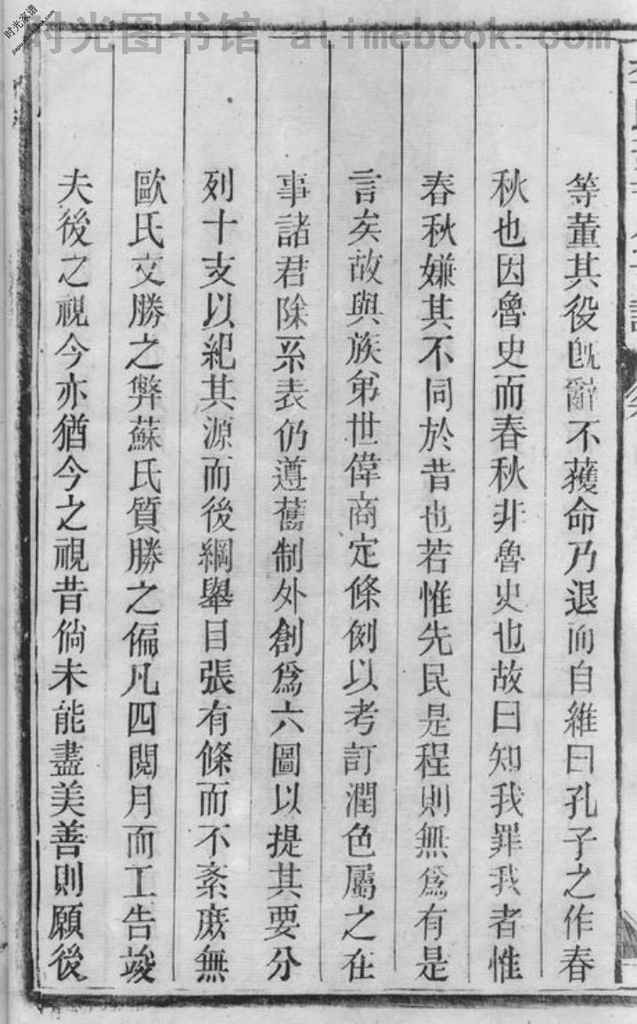 时光图书馆 - atimebook.com
时光家谱
等董其役旣辭不獲命乃退而自維曰孔子之作春
秋也因魯史而春秋非魯史也故曰知我罪我者惟
春秋嫌其不同於昔也若惟先民是程則無爲有是
言矣故與族弟世偉商定條例以考訂潤色屬之在
事諸君除系表仍遵舊制外創爲六圖以提其要分
列十支以紀其源而後綱舉目張有條而不紊庶無
歐氏文勝之弊蘇氏質勝之偏凡四閱月而工告竣
夫後之視今亦猶今之視昔倘未能盡美善則願後